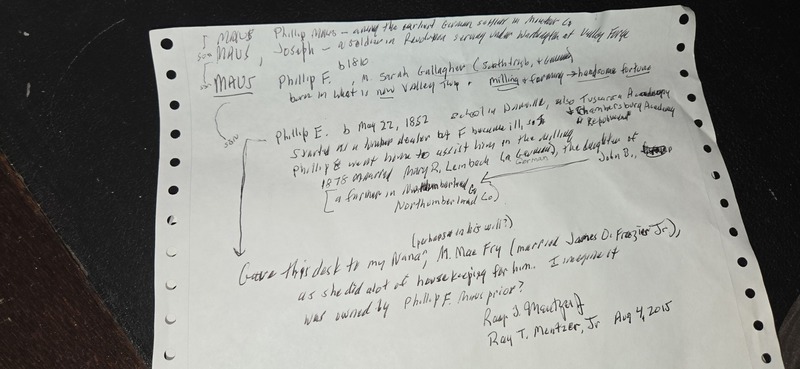 MAUS Phillip Maus - among the earliest German settlers in Montour Co
son MAUS, Joseph - a soldier in Revolution serving under Washington at Valley Forge
b1810
son MAUS Phillip F. m. Sarah Gallagher (Scotch Irish, & German)
born in what is now Valley Twp. milling & farming → handsome fortune
son Phillip E. b May 22, 1852 school in Danville, also Tuscarora Academy
& Chambersburg Academy
Started as a lumber dealer but F became ill, so
Phillip E went home to assist him in the milling
1878 married Mary R. Leinbach (a German), the daughter of
German John B.,
[a farmer in
Northumberland Co]
(perhaps in his will?)
Gave this desk to my "Nana", M. Mae Fry (married James D. Frazier Jr),
as she did alot of housekeeping for him. I imagine it
was owned by Phillip F. Maus prior?
Ray T. Mentzer Jr
Ray T. Mentzer, Jr Aug 4, 2015